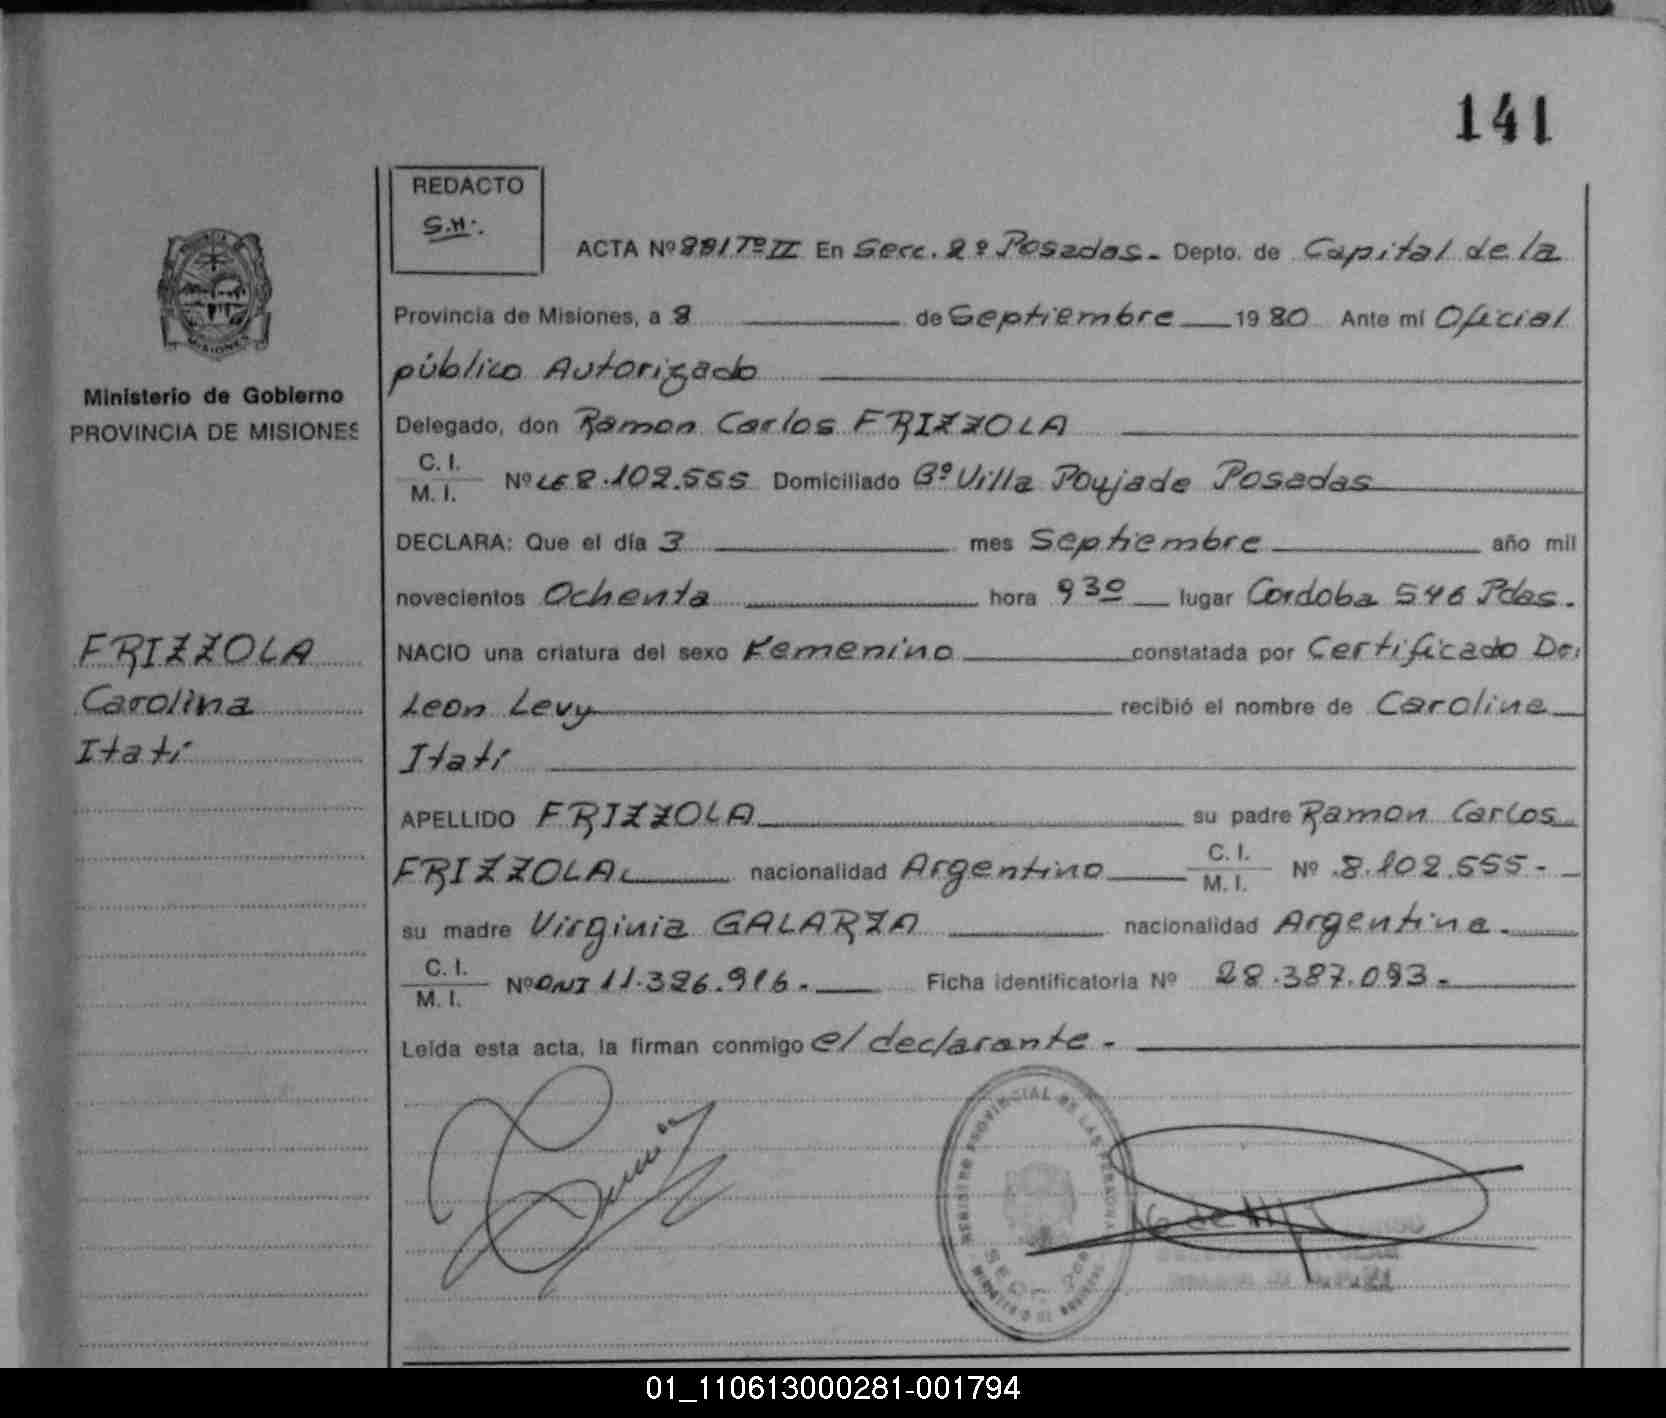 141
REDACTO
S.H.
ACTA Nº 881 Tº II En Secc. 2º Posadas. Depto. de Capital de la
Provincia de Misiones, a 8 de Septiembre 1980 Ante mí Oficial
público Autorizado
Delegado, don Ramon Carlos FRIZZOLA
C. I.
M. I. Nº LE 8.102.555 Domiciliado Bº Villa Poujade Posadas
DECLARA: Que el día 3 mes Septiembre año mil
novecientos Ochenta hora 9 30 lugar Cordoba 546 Pdas.
NACIO una criatura del sexo Femenino constatada por Certificado De:
Leon Levy recibió el nombre de Carolina
Itatí
APELLIDO FRIZZOLA su padre Ramon Carlos
FRIZZOLA nacionalidad Argentino C. I.
M. I. Nº 8.102.555.-
su madre Virginia GALARZA nacionalidad Argentina.
C. I.
M. I. Nº DNI 11.326.916.- Ficha identificatoria Nº 28.387.093.-
Leída esta acta, la firman conmigo el declarante.-
Ministerio de Gobierno
PROVINCIA DE MISIONES
FRIZZOLA
Carolina
Itatí
MISIONES
REGISTRO PROVINCIAL DE LAS PERSONAS
SECC. 2da
01_110613000281-001794